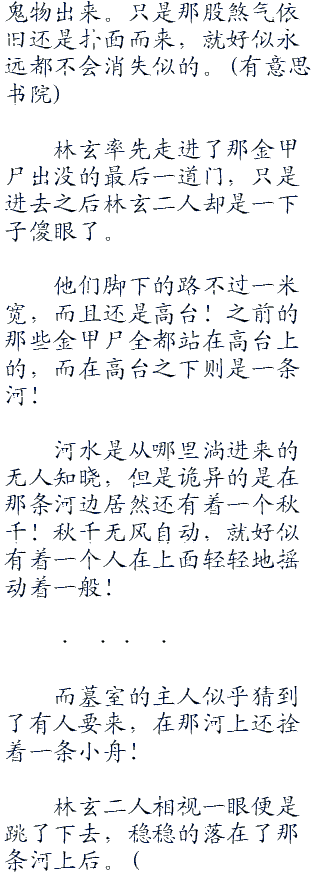 鬼物出来。只是那股煞气依
旧还是扑面而来，就好似永
远都不会消失似的。(有意思
书院)
林玄率先走进了那金甲
尸出没的最后一道门，只是
进去之后林玄二人却是一下
子傻眼了。
他们脚下的路不过一米
宽，而且还是高台！之前的
那些金甲尸全都站在高台上
的，而在高台之下则是一条
河！
河水是从哪里淌进来的
无人知晓，但是诡异的是在
那条河边居然还有着一个秋
千！秋千无风自动，就好似
有着一个人在上面轻轻地摇
动着一般！
. . . .
而墓室的主人似乎猜到
了有人要来，在那河上还拴
着一条小舟！
林玄二人相视一眼便是
跳了下去，稳稳的落在了那
条河上后。(